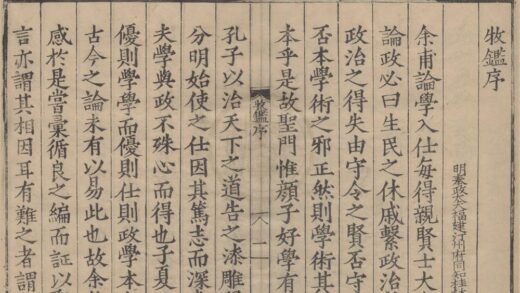 牧鑑序
福建汀州府同知桂
余甫論學入仕每得親賢士大
論政必曰生民之休戚繫政治
政治之得失由守令之賢否守
否本學術之邪正然則學術其
本乎是故聖門惟顔子好學有
牧鑑序
一
孔子以治天下之道告之漆雕
分明始使之仕因其篤志而深
夫學與政不殊心而得也子夏
優則學學而優則仕則政學本
古今之論未有以易此也故余
感於是嘗彙循良之編而証以
言亦謂其相因耳有難之者謂